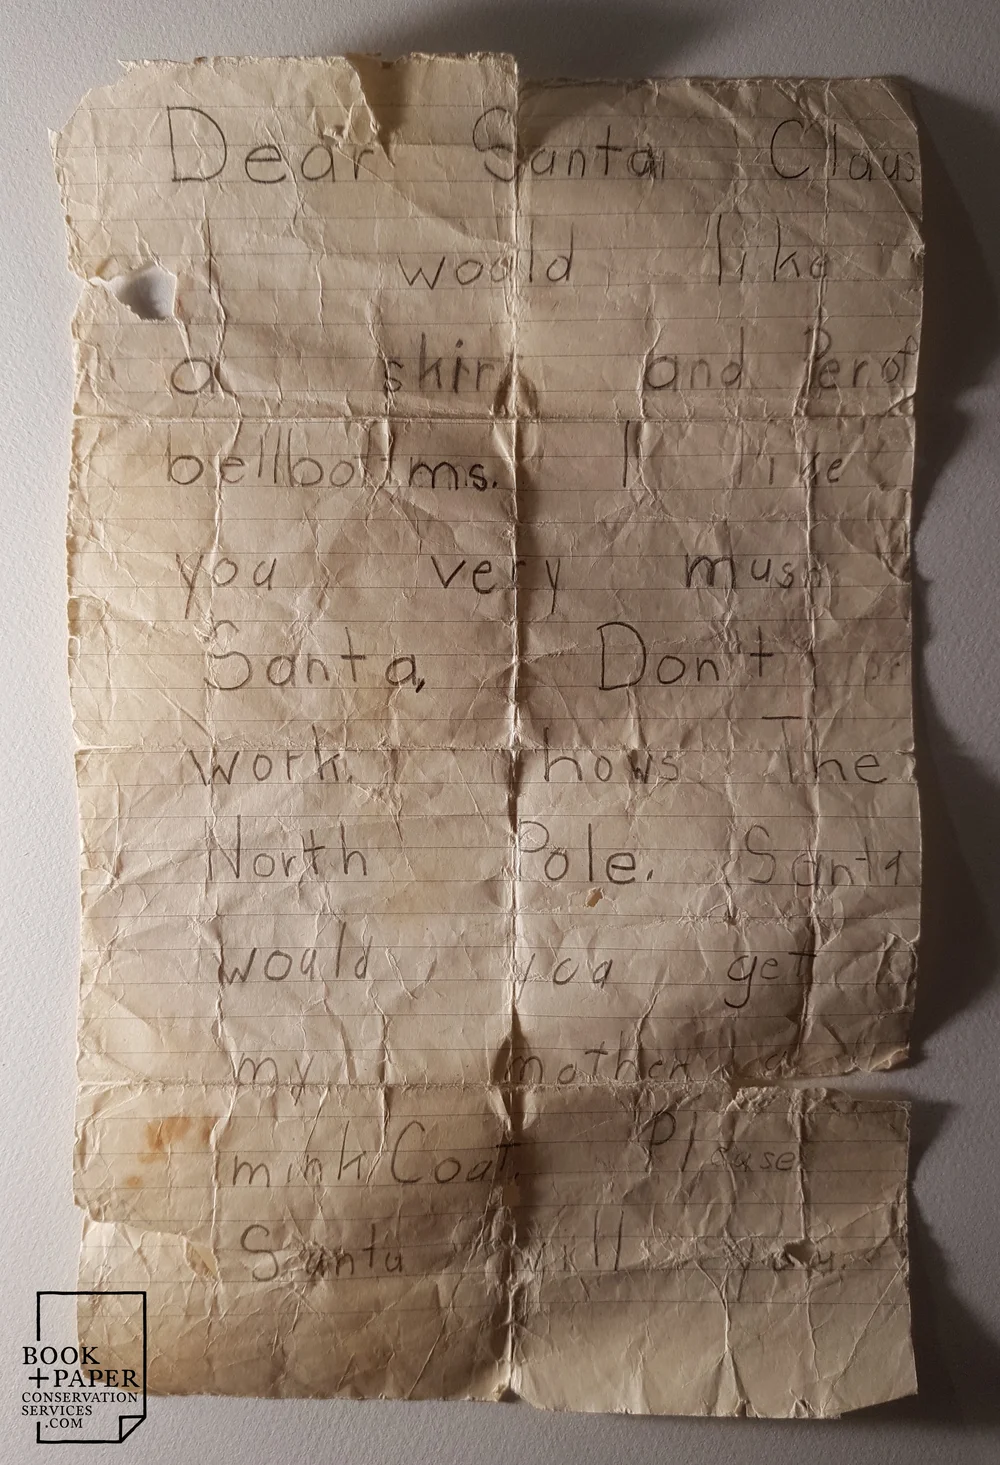 Dear Santa Claus
I would like
a skirt and Perot
bellbottms. I like
you very mush
Santa, Don't
work. hows The
North Pole. Santa
would you get
my mother a
mink Coat. Please
Santa will you.
BOOK
+PAPER
CONSERVATION
SERVICES
.COM